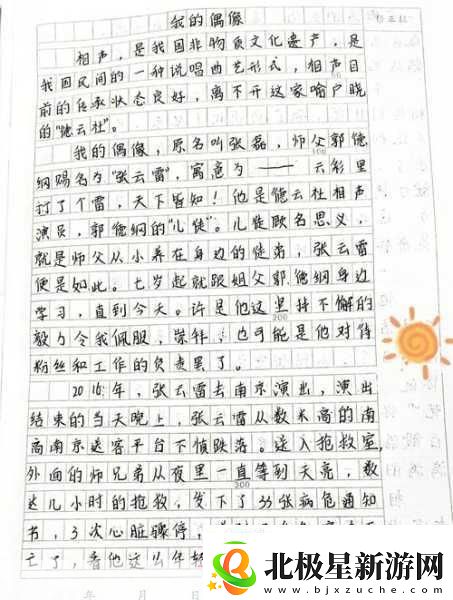 我的偶像
相声，是我国非物质文化遗产，是
我国民间的一种说唱曲艺形式，相声目
前的传承状态良好，离不开这家喻户晓
的“德云社”。
我的偶像，原名叫张磊，师父郭德
纲赐名为“张云雷”，寓意为——云彩里
打了个雷，天下皆知！他是德云社相声
演员，郭德纲的“儿徒”。儿徒顾名思义，
就是师父从小养在身边的徒弟，张云雷
便是如此。七岁起就跟姐父郭德纲身边
学习，直到今天。许是他这坚持不懈的
毅力令我佩服，崇拜，也可能是他对待
粉丝和工作的负责罢了。
2016年，张云雷去南京演出，演出
结束的当天晚上，张云雷从数米高的南
南京送客平台下慎跌落。送入抢救室，
外面的师兄弟从夜里一直等到天亮，数
达几小时的抢救，发下了33张病危通知
书，3次心脏骤停，
亡了，看他这么年轻
100
200
300
年 月 日
北极星新游网
www.bjxzuche.com